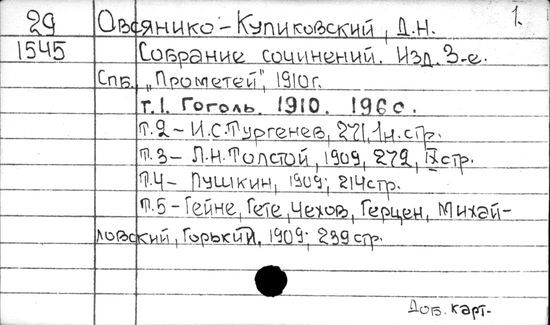 29 Овсянико-Куликовский, Д.Н. 1.
1545 Собрание сочинений. Изд. 3-е.
Спб., "Прометей", 1910г.
т.1. Гоголь. 1910. 196с.
т.2- И.С.Тургенев, 271,1н.стр.
т.3- Л.Н.Толстой, 1909, 279, IXстр.
т.4- Пушкин, 1909; 214стр.
т.5- Гейне, Гете, Чехов, Герцен, Михай-
ловский, Горький. 1909; 299стр.
Доб. карт-